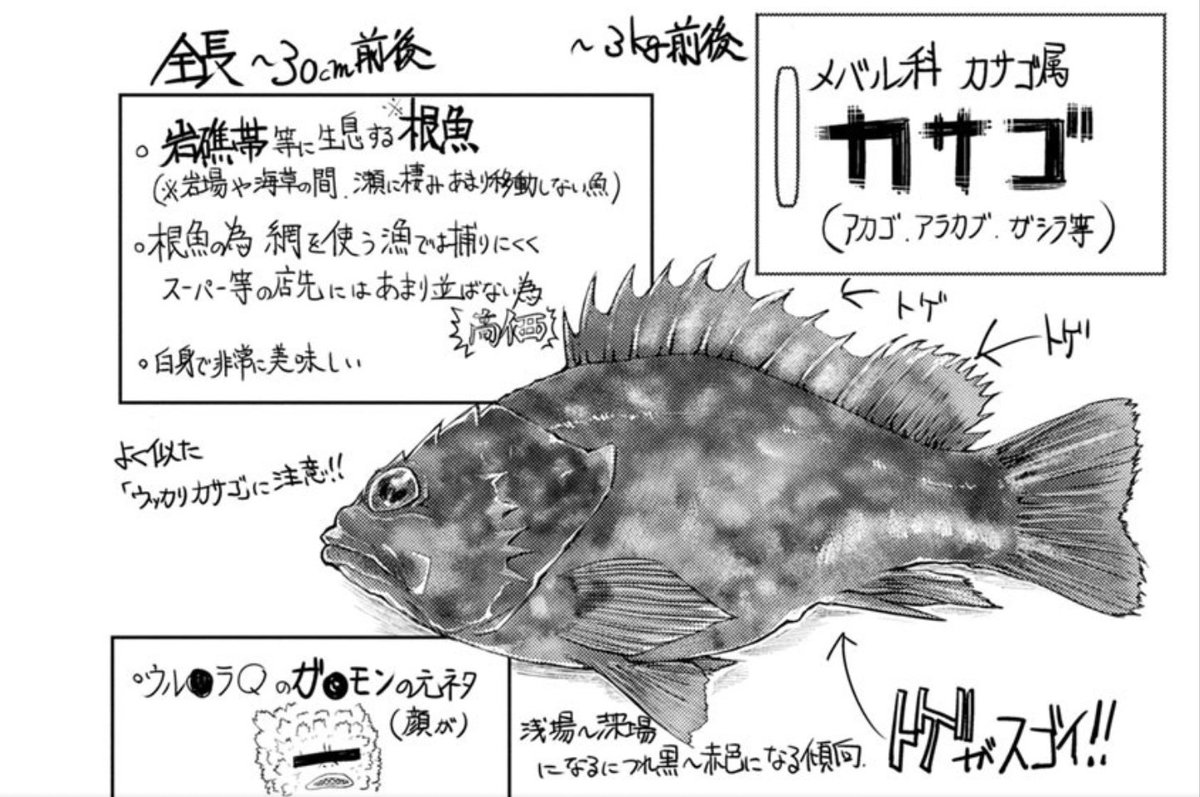 全長~30cm前後
~3kg前後
メバル科 カサゴ属
カサゴ
(アカゴ.アラカブ.ガシラ等)
。岩礁帯等に生息する※根魚
(※岩場や海草の間.瀬に棲みあまり移動しない魚)
。根魚の為 網を使う漁では捕りにくく
スーパー等の店先にはあまり並ばない為
高価
。白身で非常に美味しい
トゲ
トゲ
よく似た
「ウッカリカサゴ」に注意!!
。ウル●ラQのガ●モンの元ネタ
(顔が)
浅場~深場
になるにつれ黒~赤色になる傾向.
トゲがスゴイ!!